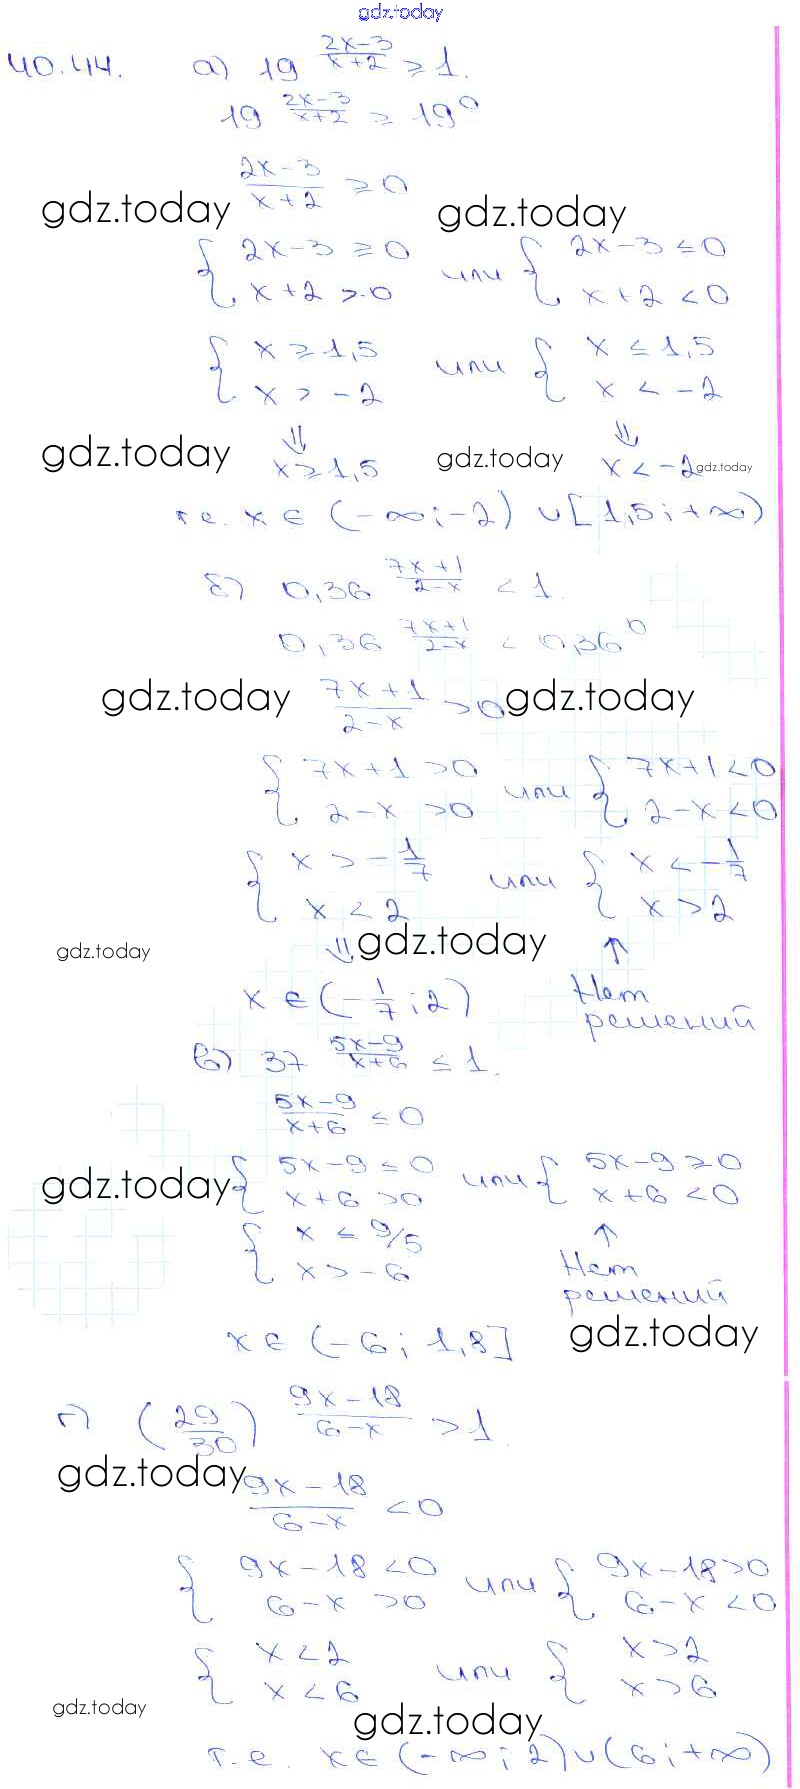 gdz.today
40.44. а) 19^((2x-3)/(x+2)) ≥ 1.
19^((2x-3)/(x+2)) ≥ 19^0
(2x-3)/(x+2) ≥ 0
gdz.today gdz.today
{ 2x-3 ≥ 0 или { 2x-3 ≤ 0
x+2 > 0 x+2 < 0
{ x ≥ 1,5 или { x ≤ 1,5
x > -2 x < -2
⇓ ⇓
gdz.today x ≥ 1,5 gdz.today x < -2 gdz.today
т.е. x ∈ (-∞; -2) ∪ [1,5; +∞)
б) 0,36^((7x+1)/(2-x)) < 1.
0,36^((7x+1)/(2-x)) < 0,36^0
gdz.today (7x+1)/(2-x) > 0 gdz.today
{ 7x+1 > 0 или { 7x+1 < 0
2-x > 0 2-x < 0
{ x > -1/7 или { x < -1/7
x < 2 x > 2
gdz.today ⇓ gdz.today ↑
x ∈ (-1/7; 2) Нет
решений
в) 37^((5x-9)/(x+6)) ≤ 1.
(5x-9)/(x+6) ≤ 0
gdz.today { 5x-9 ≤ 0 или { 5x-9 ≥ 0
x+6 > 0 x+6 < 0
{ x ≤ 9/5 ↑
x > -6 Нет
решений
x ∈ (-6; 1,8] gdz.today
г) (29/30)^((9x-18)/(6-x)) > 1.
gdz.today (9x-18)/(6-x) < 0
{ 9x-18 < 0 или { 9x-18 > 0
6-x > 0 6-x < 0
{ x < 2 или { x > 2
x < 6 x > 6
gdz.today gdz.today
т.е. x ∈ (-∞; 2) ∪ (6; +∞)